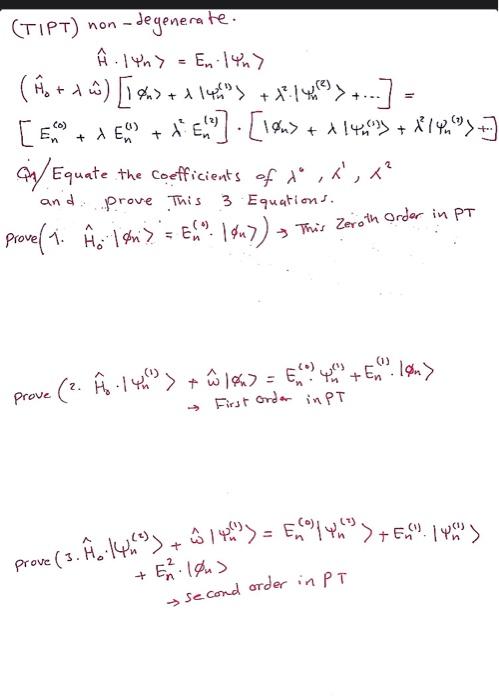 (TIPT) non-degenerate.
Ĥ·|Ψn⟩ = En·|Ψn⟩
(Ĥ₀ + λ ŵ) [|φn⟩ + λ|Ψn⁽¹⁾⟩ + λ²·|Ψn⁽²⁾⟩ + ...] =
[En⁽⁰⁾ + λ En⁽¹⁾ + λ² En⁽²⁾]·[|φn⟩ + λ|Ψn⁽¹⁾⟩ + λ²|Ψn⁽²⁾⟩+...]
Q1/ Equate the coefficients of λ⁰, λ¹, λ²
and prove This 3 Equations.
Prove(1. Ĥ₀·|φn⟩ = En⁽⁰⁾·|φn⟩) → This Zeroth Order in PT
prove (2. Ĥ₀·|Ψn⁽¹⁾⟩ + ŵ|φn⟩ = En⁽⁰⁾·Ψn⁽¹⁾ + En⁽¹⁾·|φn⟩
→ First Order in PT
prove (3. Ĥ₀·|Ψn⁽²⁾⟩ + ŵ|Ψn⁽¹⁾⟩ = En⁽⁰⁾|Ψn⁽²⁾⟩ + En⁽¹⁾·|Ψn⁽¹⁾⟩
+ En²·|φn⟩
→ second order in PT